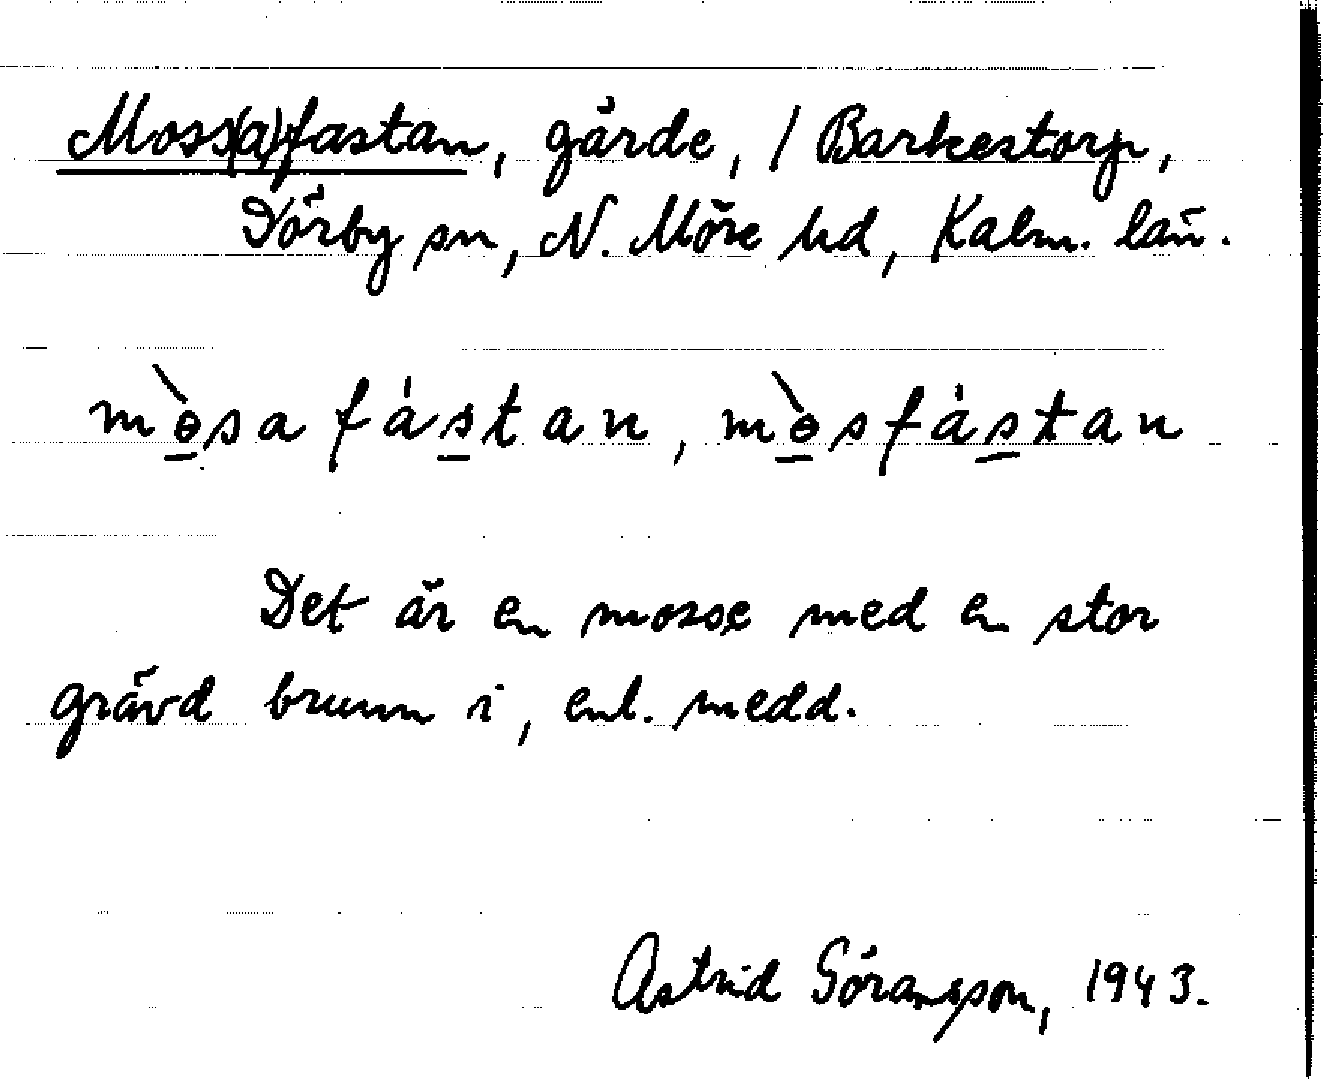 Moss(a)fastan, gärde, / Barkestorp,
Dörby sn, N. Möre hd, Kalm. län.
mòsafástan, mòsfástan
Det är en mosse med en stor
grävd brunn i, enl. medd.
Astrid Göransson, 1943.